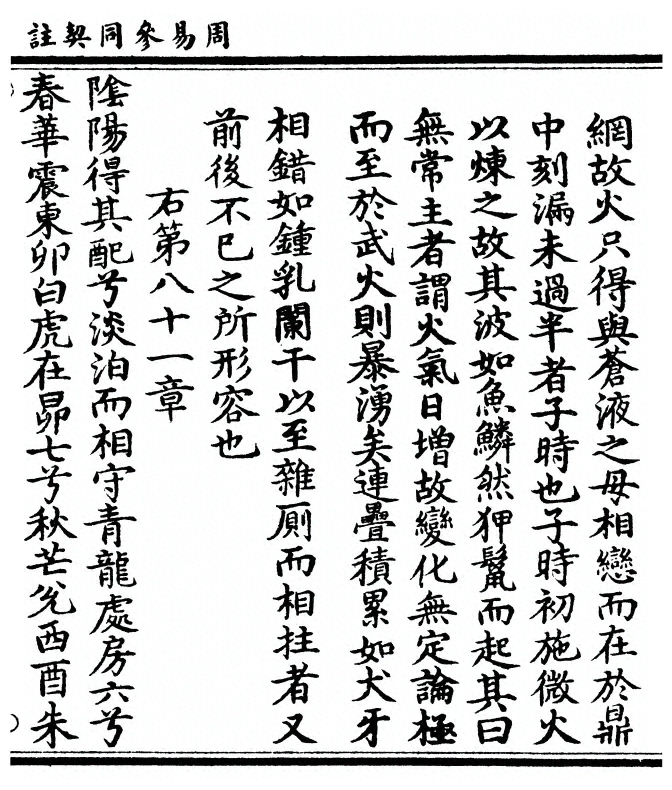 周易參同契註
網故火只得與蒼液之母相戀而在於鼎
中刻漏未過半者子時也子時初施微火
以煉之故其波如魚鱗然狎鬣而起其曰
無常主者謂火氣日增故變化無定論極
而至於武火則暴湧矣連疊積累如犬牙
相錯如鍾乳闌干以至雜厠而相拄者又
前後不已之所形容也
右第八十一章
陰陽得其配兮淡泊而相守青龍處房六兮
春華震東卯白虎在昴七兮秋芒兊西酉朱